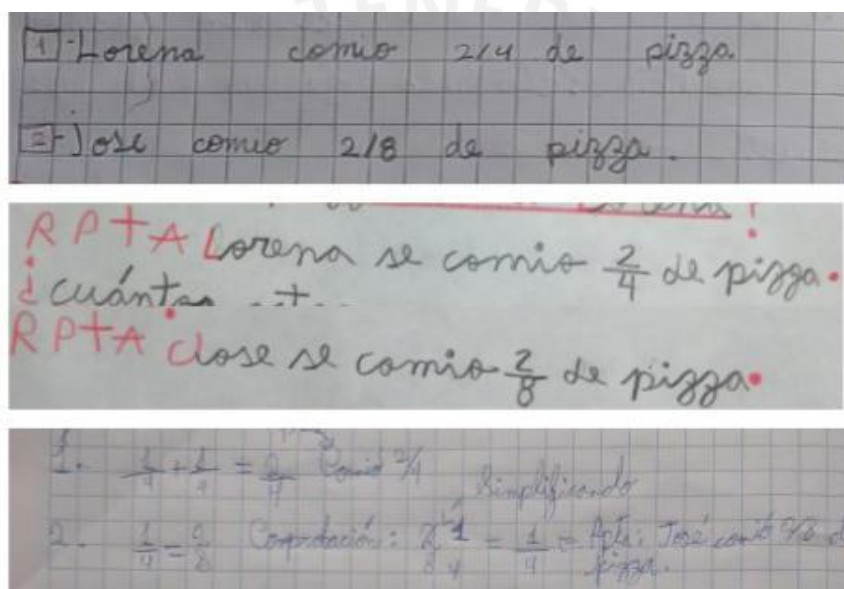 TENEB
1 - Lorena comio 2/4 de pizza.
2 - Jose comio 2/8 de pizza.
RPTA Lorena se comio 2/4 de pizza.
¿cuántas
RPTA Jose se comio 2/8 de pizza.
1. 1/4 + 1/4 = 2/4 Comió 2/4
Simplificando
2. 1/4 = 2/8 Comprobación: 2/8 1/4 = 1/4 = Rpta: José comió 2/8 d
pizza.